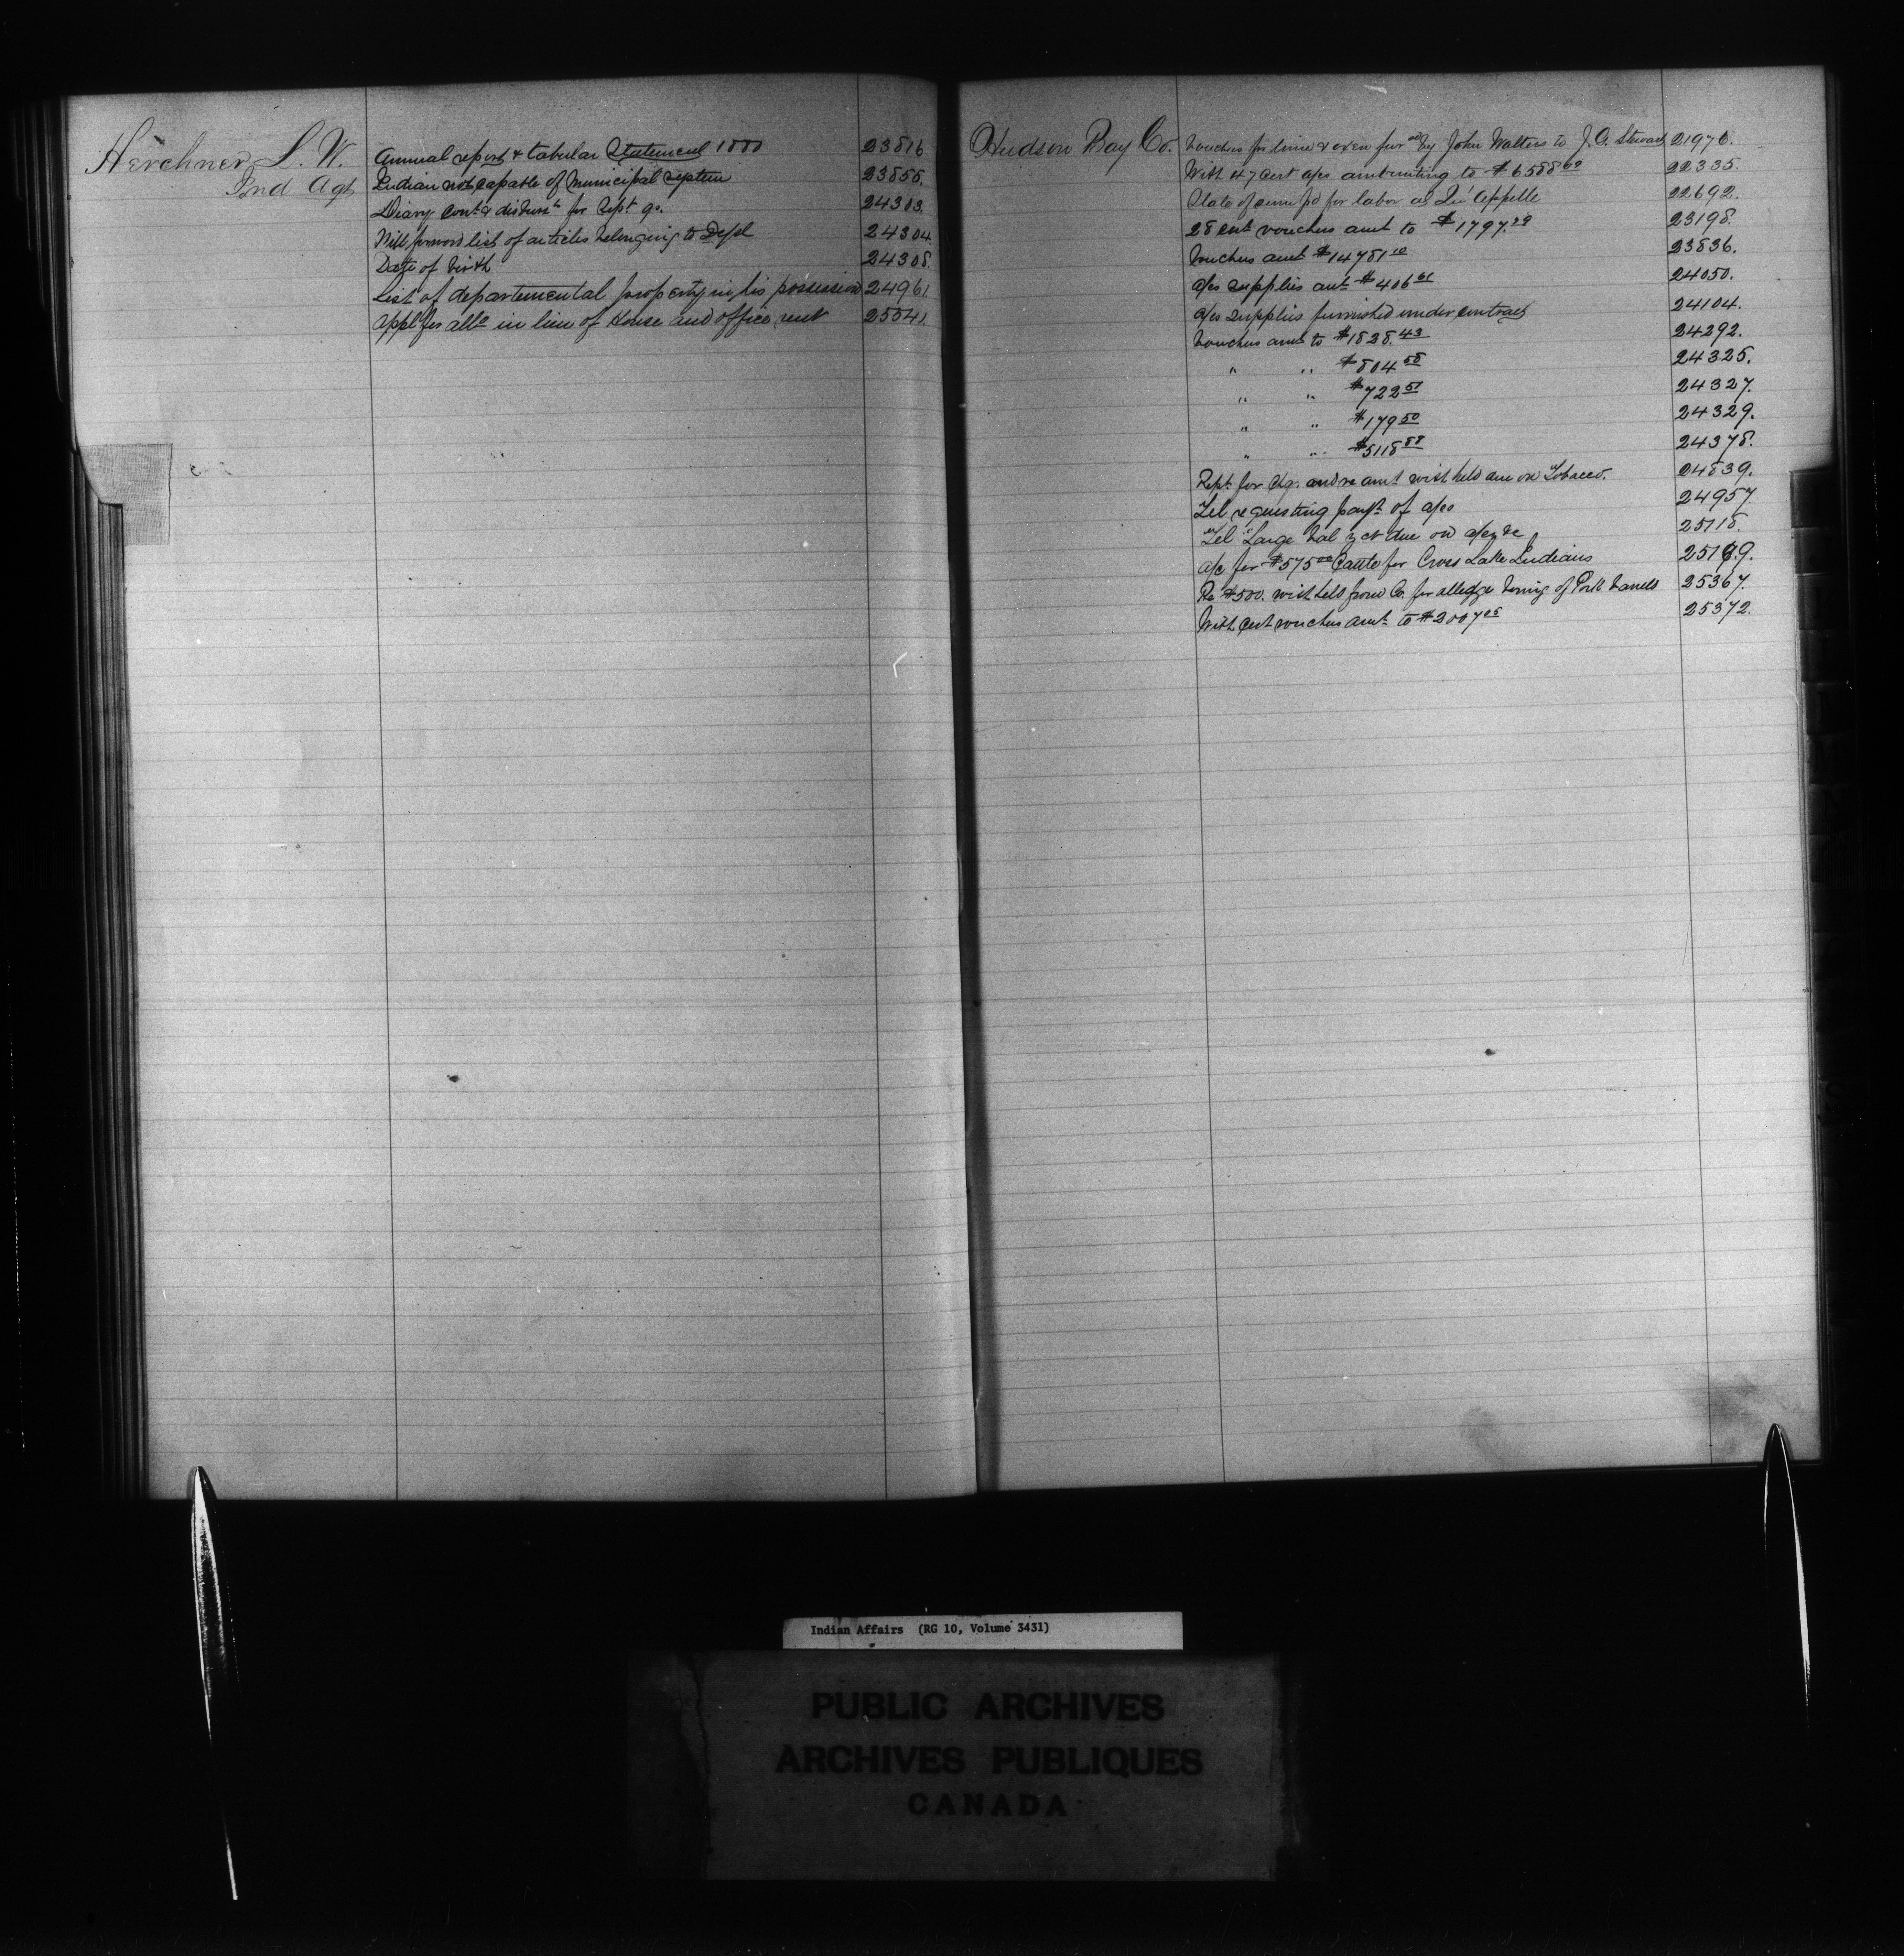 Herchmer L. W. Annual report & tabular Statement 1880 23816
Ind Agt Indian not capable of Municipal system 23855.
Diary cont & disburst for Sept qr. 24303.
Will forward list of articles belonging to Dept 24304.
Date of birth 24308.
List of departemental property in his possession 24961.
Appl for allce in lieu of House and office rent 25541.
Hudson Bay Co. Vouchers for lime & oxen furd by John Walters to J. G. Stewart 21976.
With 47 Cert a/cs amounting to $6588 60 22335.
State of sum pd for labor at Qu'Appelle 22692.
28 cert vouchers amt to $1797. 23198.
Vouchers amt $14781 10 23836.
a/cs supplies amt $406 61 24050.
a/cs Supplies furnished under contract 24104.
Vouchers amt to $1828. 43 24292.
" " $804 58 24325.
" " $722 51 24327.
" " $179 50 24329.
" " $5118 88 24378.
Rept for and re amt with held due on Tobacco. 24839.
Tel requesting payt of a/cs 24957.
Tel Large bal yet due on a/cs &c 25118.
a/c for $575 00 Cattle for Cross Lake Indians 25189.
Re $500. with held from Co. for alledge boring of Pork barrels 25367.
With Cert vouchers amt to $2007 05 25372.
Indian Affairs (RG 10, Volume 3431)
PUBLIC ARCHIVES
ARCHIVES PUBLIQUES
CANADA